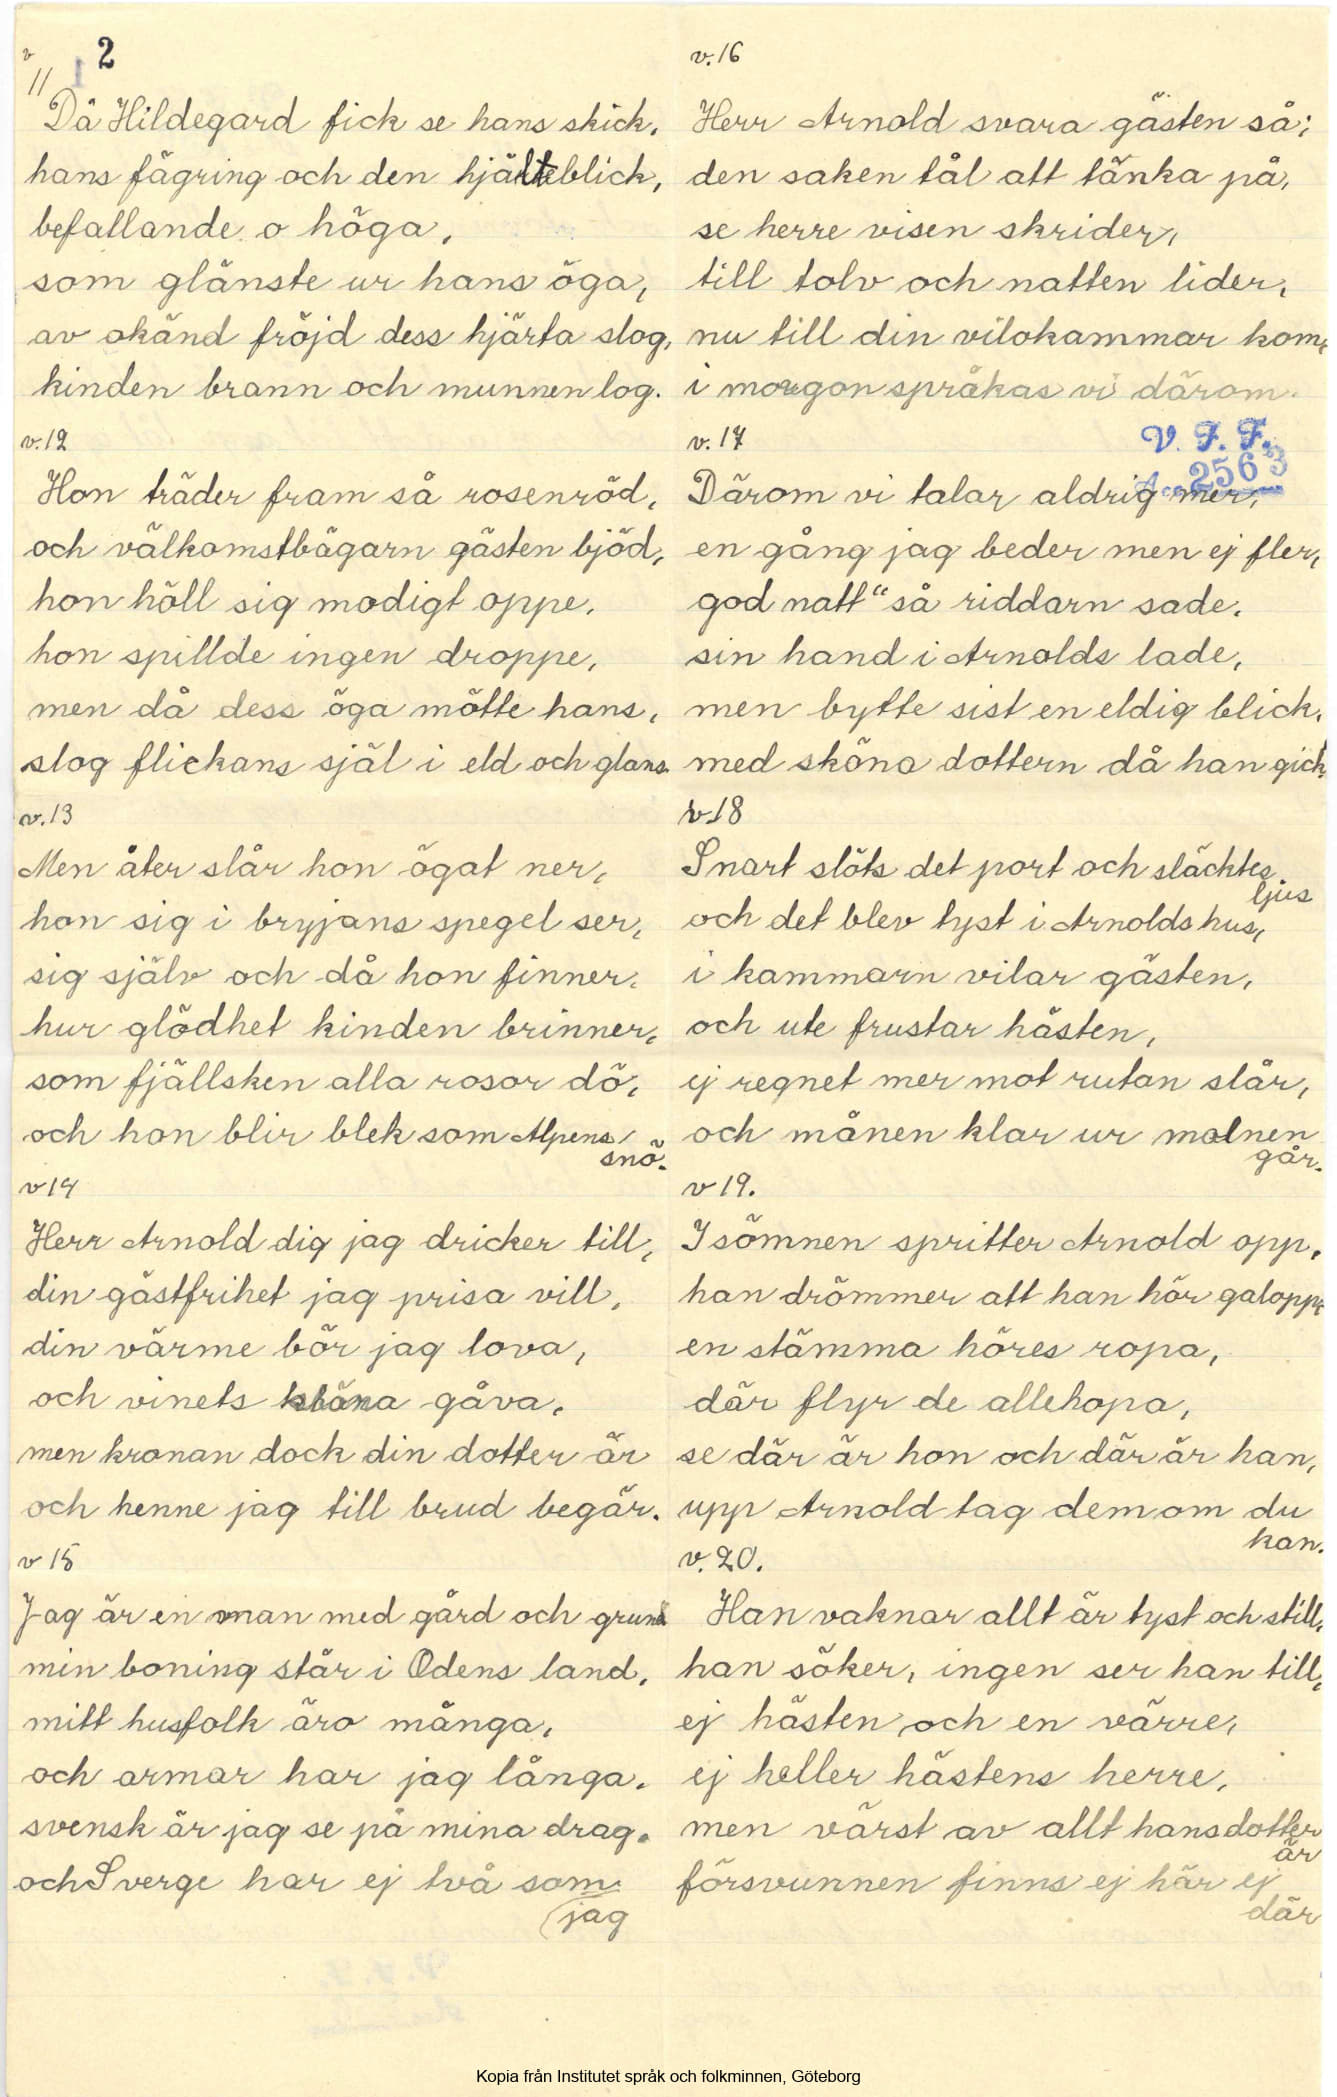 2
v
11
Då Hildegard fick se hans skick,
hans fägring och den hjälteblick,
befallande o höga,
som glänste ur hans öga,
av okänd fröjd dess hjärta slog,
kinden brann och munnen log.
v.12
Hon träder fram så rosenröd,
och välkomstbägarn gästen bjöd,
hon höll sig modigt oppe,
hon spillde ingen droppe,
men då dess öga mötte hans,
slog flickans själ i eld och glans.
v.13
Men åter slår hon ögat ner,
hon sig i bryjans spegel ser,
sig själv och då hon finner,
hur glödhet kinden brinner,
som fjällsken alla rosor dö,
och hon blir blek som Alpens
snö.
v 14
Herr Arnold dig jag dricker till,
din gästfrihet jag prisa vill,
din värme bör jag lova,
och vinets gåva,
men kronan dock din dotter är
och henne jag till brud begär.
v 15
Jag är en man med gård och grund
min boning står i Odens land,
mitt husfolk äro många,
och armar har jag långa,
svensk är jag se på mina drag.
och Sverge har ej två som
(jag
v.16
Herr Arnold svara gästen så;
den saken tål att tänka på,
se herre visen skrider,
till tolv och natten lider,
nu till din vilokammar kom,
i morgon språkas vi därom.
v.17
V. F. F.
Acc 2563
Därom vi talar aldrig mer,
en gång jag beder men ej fler,
god natt" så riddarn sade,
sin hand i Arnolds lade,
men bytte sist en eldig blick,
med sköna dottern då han gick,
v.18
Snart slöts det port och släcktes
ljus
och det blev tyst i Arnolds hus,
i kammarn vilar gästen,
och ute frustar hästen,
ej regnet mer mot rutan slår,
och månen klar ur molnen
går.
v 19.
I sömnen spritter Arnold opp,
han drömmer att han hör galopp,
en stämma höres ropa,
där flyr de allehopa,
se där är hon och där är han,
upp Arnold tag dem om du
kan.
v. 20.
Han vaknar allt är tyst och still,
han söker, ingen ser han till,
ej hästen och en värre,
ej heller hästens herre,
men värst av allt hans dotter
är
försvunnen finns ej här ej
där
Kopia från Institutet språk och folkminnen, Göteborg